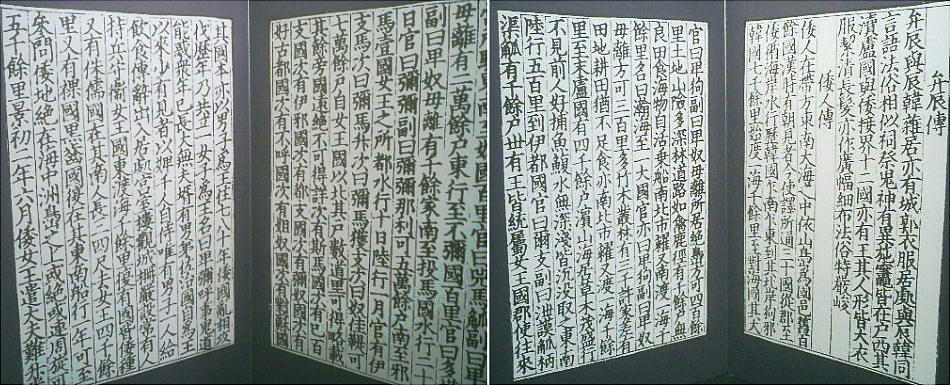 弁辰傳
弁辰與辰韓雜居亦有城郭衣服居處與辰韓同
言語法俗相似祠祭鬼神有異施竈皆在戶西其
瀆盧國與倭接界十二國亦有王其人形皆大衣
服絜清長髮亦作廣幅細布法俗特嚴峻
倭人傳
倭人在帶方東南大海之中依山島爲國邑舊百
餘國漢時有朝見者今使譯所通三十國從郡至
倭循海岸水行歷韓國乍南乍東到其北岸狗邪
韓國七千餘里始度一海千餘里至對海國其大
官曰卑狗副曰卑奴母離所居絶島方可四百餘
里土地山險多深林道路如禽鹿徑有千餘戶無
良田食海物自活乗船南北市糴又南渡一海千
餘里名曰瀚海至一大國官亦曰卑狗副曰卑奴
母離方可三百里多竹木叢林有三千許家差有
田地耕田猶不足食亦南北市糴又渡一海千餘
里至末盧國有四千餘戶濵山海居草木茂盛行
不見前人好捕魚鰒水無深淺皆沈没取之東南
陸行五百里到伊都國官曰爾支副曰泄謨觚柄
渠觚有千餘戶丗有王皆統屬女王國郡使往來
奴國百里官曰兕馬觚副曰卑奴
母離有二萬餘戶東行至不彌國百里官曰多模
副曰卑奴母離有千餘家南至投馬國水行二十
日官曰彌彌副曰彌彌那利可五萬餘戶南至邪
馬壹國女王之所都水行十日陸行一月官有伊
支馬次曰彌馬升次曰彌馬獲支次曰奴佳鞮可
七萬餘戶自女王國以北其戶數道里可得略載
其餘旁國遠絶不可得詳次有斯馬國次有已百
支國次有伊邪國次有都支國次有彌奴國次有
好古都國次有不呼國次有姐奴國次有對蘇國
其國本亦以男子爲王住七八十年倭國亂相攻
伐歷年乃共立一女子爲王名曰卑彌呼事鬼道
能惑衆年已長大無夫壻有男弟佐治國自爲王
以來少有見者以婢千人自侍唯有男子一人給
飲食傳辭出入居處宮室樓觀城柵嚴設常有人
持兵守衛女王國東渡海千餘里復有國皆倭種
又有侏儒國在其南人長三四尺去女王四千餘
里又有裸國黒齒國復在其東南船行一年可至
參問倭地絶在海中洲㠀之上或絶或連周旋可
五千餘里景初二年六月倭女王遣大夫難升米